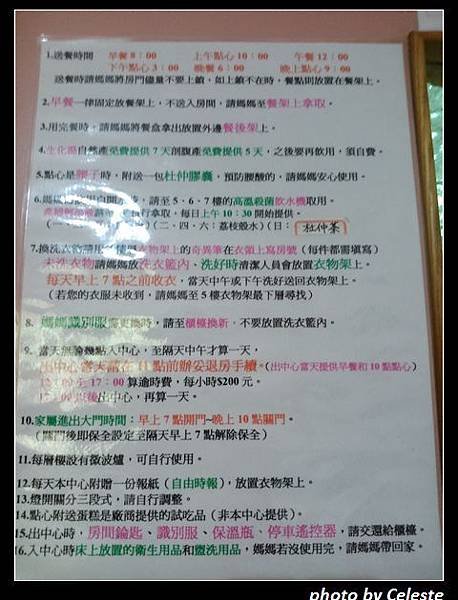 1.送餐時間 早餐8:00 上午點心10:00 午餐12:00
下午點心3:00 晚餐6:00 晚上點心9:00
送餐時請媽媽將房門儘量不要上鎖,如上鎖不在時,餐點則放置在餐架上。
2.早餐一律固定放餐架上,不送入房間,請媽媽至餐架上拿取。
3.用完餐時,請媽媽將餐盒拿出放置外邊餐後架上。
4.生化湯自然產免費提供7天剖腹產免費提供5天,之後要再飲用,須自費。
5.點心是腰子時,附送一包杜仲膠囊,預防腰酸的,請媽媽安心使用。
6.媽媽 請至5、6、7樓的高溫殺菌飲水機取用。
取,每日上午10:30開始提供。
(二、四、六:荔枝殼水)(日: 杜仲茶
7.換洗衣物請用 衣物架上的奇異筆在衣領上寫房號(每件都需填寫)
未洗衣物請媽媽放洗衣籃內、洗好時清潔人員會放置衣物架上。
每天早上7點之前收衣,當天中午或下午洗好送回衣物架上。
(若您的衣服未收到,請媽媽至5樓衣物架最下層尋找)
8. 媽媽識別服需更換時,請至櫃檯換新,不要放置洗衣籃內。
9. 當天無論幾點入中心,至隔天中午才算一天,
出中心當天請在11點前辦妥退房手續。(出中心當天提供早餐和10點點心)
12:00至17:00算逾時費,每小時$200元。
17:00以後出中心,再算一天。
10.家屬進出大門時間:早上7點開門~晚上10點關門。
(關門後即保全設定至隔天早上7點解除保全)
11.每層樓設有微波爐,可自行使用。
12.每天本中心附贈一份報紙(自由時報),放置衣物架上。
13.燈開關分三段式,請自行調整。
14.點心附送蛋糕是廠商提供的試吃品(非本中心提供)。
15.出中心時,房間鑰匙、識別服、保溫瓶、停車遙控器,請交還給櫃檯。
16.入中心時床上放置的衛生用品和盥洗用品,媽媽若沒使用完,請媽媽帶回家。
photo by Celeste